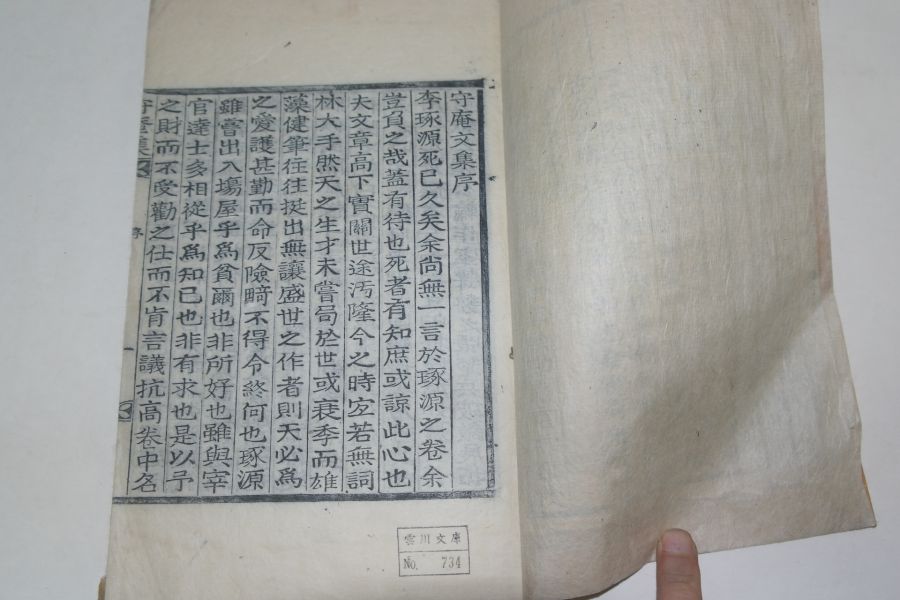 守庵文集序
李琢源死已久矣余尚無一言於琢源之卷余
豈負之哉蓋有待也死者有知庶或諒此心也
夫文章高下實關世途汚隆今之時宜若無詞
林大手然天之生才未嘗局於世或衰季而雄
藻健筆往往挺出無讓盛世之作者則天必爲
之愛護甚勤而命反險畸不得令終何也琢源
雖嘗出入場屋乎爲貧爾也非所好也雖與宰
官達士多相從乎爲知己也非有求也是以予
之財而不受勸之仕而不肯言議抗高卷中名
守庵集
序
一
雲川文庫
No. 734